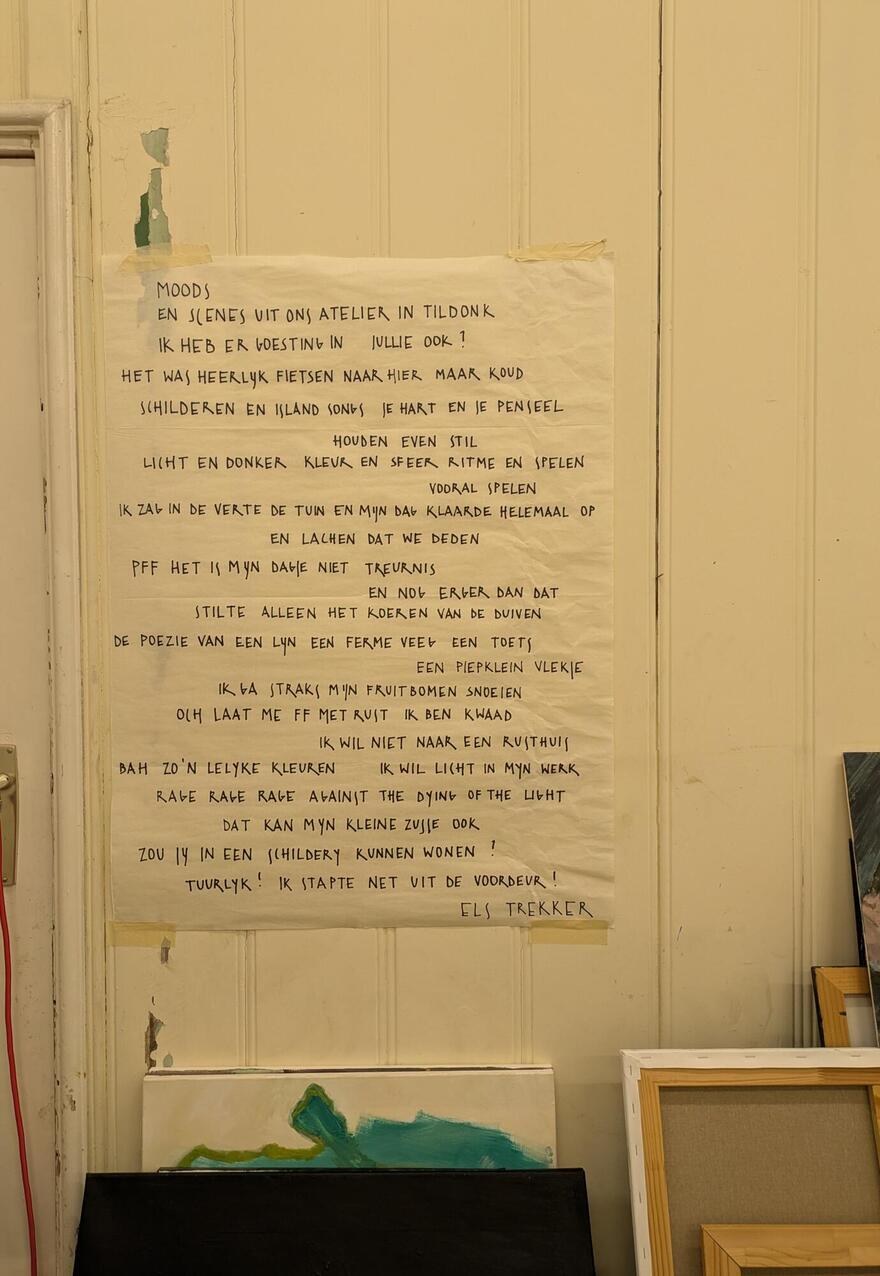 MOODS
EN SCENES UIT ONS ATELIER IN TILDONK
IK HEB ER GOESTING IN JULLIE OOK?
HET WAS HEERLYK FIETSEN NAAR HIER MAAR KOUD
SCHILDEREN EN ISLAND SONGS JE HART EN JE PENSEEL
HOUDEN EVEN STIL
LICHT EN DONKER KLEUR EN SFEER RITME EN SPELEN
VOORAL SPELEN
IK ZAG IN DE VERTE DE TUIN EN MYN DAG KLAARDE HELEMAAL OP
EN LACHEN DAT WE DEDEN
PFF HET IS MYN DAGJE NIET TREURNIS
EN NOG ERGER DAN DAT
STILTE ALLEEN HET KOEREN VAN DE DUIVEN
DE POEZIE VAN EEN LYN EEN FERME VEEG EEN TOETS
EEN PIEPKLEIN VLEKJE
IK GA STRAKS MYN FRUITBOMEN SNOEIEN
OCH LAAT ME FF MET RUST IK BEN KWAAD
IK WIL NIET NAAR EEN RUSTHUIS
BAH ZO'N LELYKE KLEUREN IK WIL LICHT IN MYN WERK
RAGE RAGE RAGE AGAINST THE DYING OF THE LIGHT
DAT KAN MYN KLEINE ZUSJE OOK
ZOU JY IN EEN SCHILDERY KUNNEN WONEN?
TUURLYK! IK STAPTE NET UIT DE VOORDEUR!
ELS TREKKER